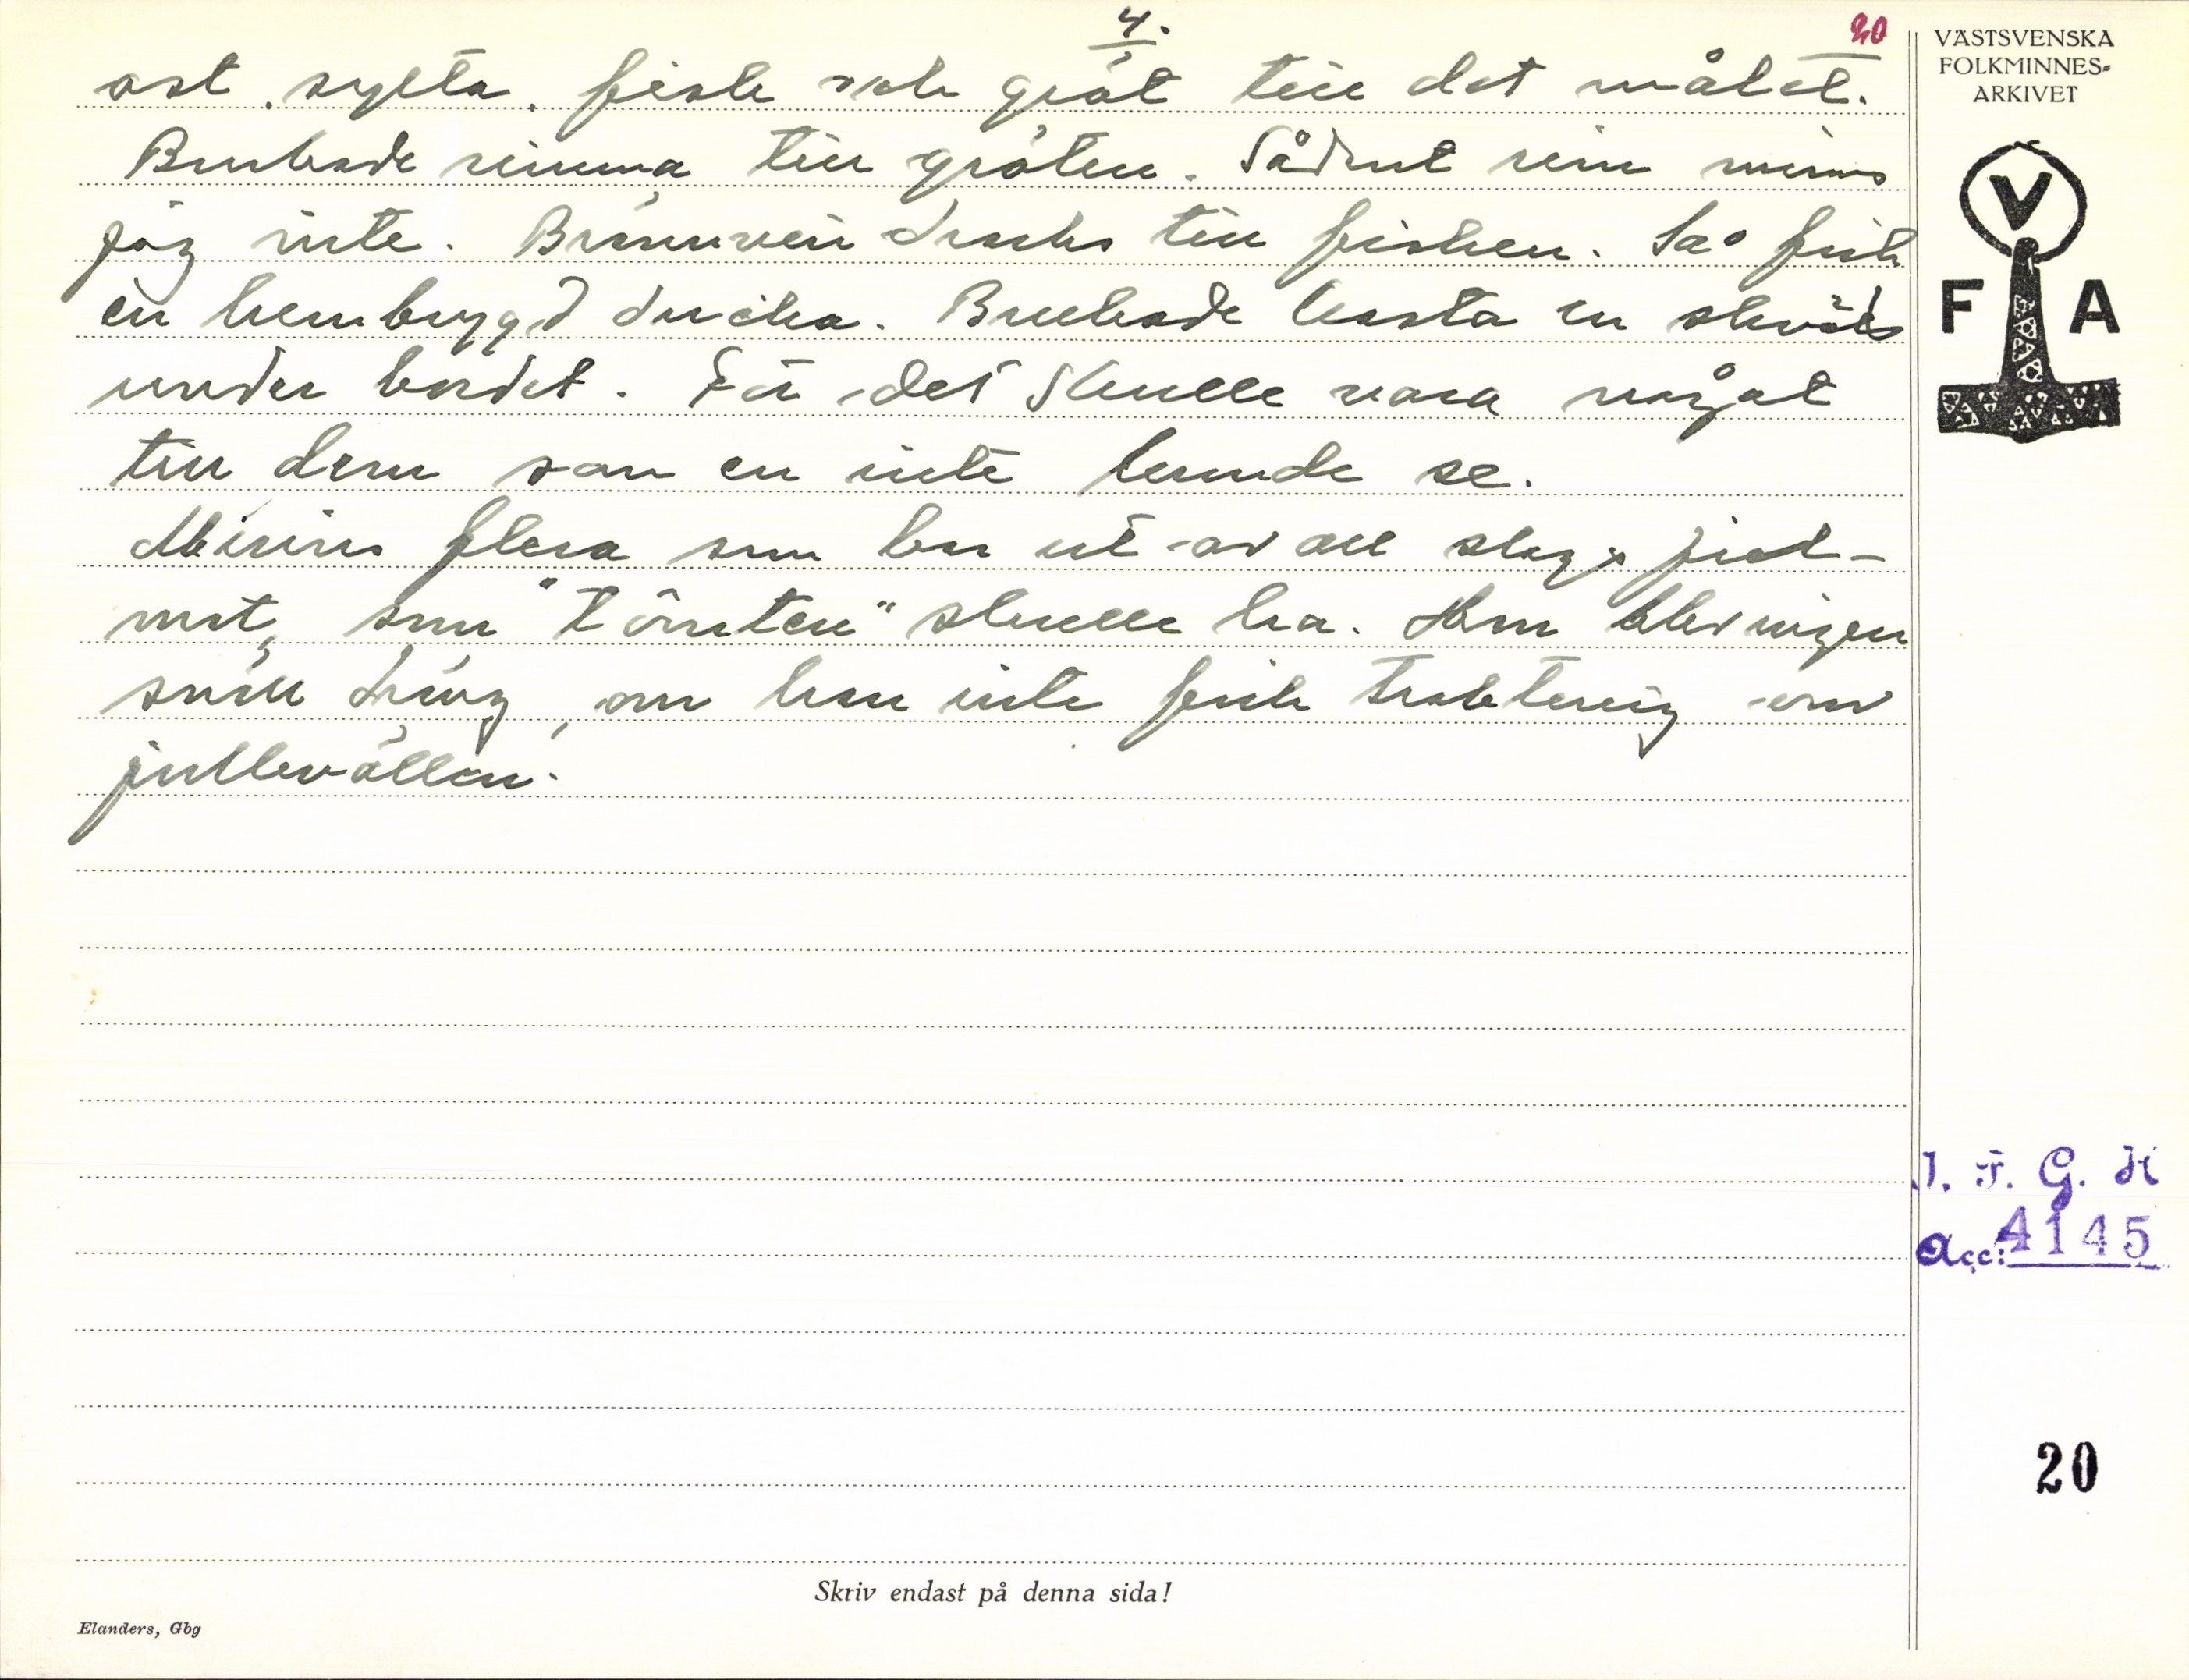 4.
20
ost, sylta, fisk och gröt till det målet.
Brukade rimma till gröten. Sådant rim minns
jag inte. Brännvin dracks till fisken. Så fick
en hembryggd dricka. Brukade kasta en skvätt
under bordet. För det skulle vara något
till dem som en inte kunde se.
Minns flera som bar ut av all slags jul-
mat, som "Tomten" skulle ha. Hem blev ingen
snäll dräng, om han inte fick traktering om
jullevällen.
VÄSTSVENSKA
FOLKMINNES-
ARKIVET
V
F A
I. F. G. H
Acc: 4145
20
Skriv endast på denna sida!
Elanders, Gbg